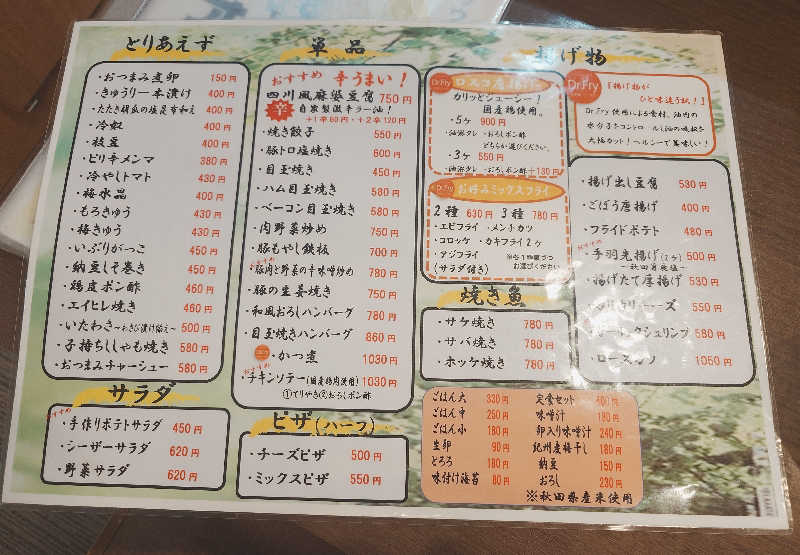 とりあえず
・おつまみ煮卵 150円
・きゅうり一本漬け 400円
・たたき胡瓜の塩昆布和え 400円
・冷奴 400円
・枝豆 400円
・ピリ辛メンマ 380円
・冷やしトマト 430円
・梅水晶 400円
・もろきゅう 430円
・梅きゅう 430円
・いぶりがっこ 450円
・納豆しそ巻き 450円
・鶏皮ポン酢 460円
・エイヒレ焼き 460円
・いたわさ～わさび漬け添え～ 500円
・子持ちししゃも焼き 580円
・おつまみチャーシュー 580円
サラダ
おすすめ
・手作りポテトサラダ 450円
・シーザーサラダ 620円
・野菜サラダ 620円
単品
おすすめ 辛うまい！
四川風麻婆豆腐 750円
辛 自家製激辛ラー油！
+1辛60円・+2辛120円
・焼き餃子 550円
・豚トロ塩焼き 600円
・目玉焼き 450円
・ハム目玉焼き 580円
・ベーコン目玉焼き 580円
・肉野菜炒め 750円
・豚もやし鉄板 700円
おすすめ
・豚肉と野菜の辛味噌炒め 780円
・豚の生姜焼き 750円
・和風おろしハンバーグ 780円
・目玉焼きハンバーグ 860円
・かつ煮 1030円
おすすめ
・チキンソテー(国産鶏肉使用) 1030円
①てりやき②おろしポン酢
ピザ(ハーフ)
・チーズピザ 500円
・ミックスピザ 550円
揚げ物
Dr.Fry
カリッとジューシー！
国産鶏使用。
・5ヶ 900円
・油淋タレ ・おろしポン酢
どちらか選びください。
・3ヶ 550円
・油淋タレ ・おろしポン酢 +130円
Dr.Fry お好みミックスフライ
2種 630円 3種 780円
・エビフライ ・メンチカツ
・コロッケ ・カキフライ2ヶ
・アジフライ
(サラダ付き)
Dr.Fry
『揚げ物が
ひと味違う訳！』
Dr.Fry使用による食材、油内の
水分子をコントロールし油の吸収を
大幅カット！ヘルシーで美味しい！
・揚げ出し豆腐 530円
・ごぼう唐揚げ 400円
・フライドポテト 480円
おすすめ
・手羽先揚げ(2ヶ) 500円
・揚げたて厚揚げ 530円
550円
580円
・ロースカツ 1050円
焼き魚
・サケ焼き 780円
・サバ焼き 780円
・ホッケ焼き 780円
ごはん大 330円
ごはん中 250円
ごはん小 180円
生卵 90円
とろろ 180円
味付け海苔 80円
定食セット
味噌汁 180円
卵入り味噌汁 240円
紀州産梅干し 180円
納豆 150円
おろし 230円
※秋田県産米使用